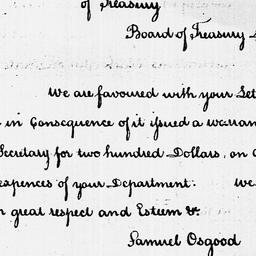 of Treasury
Board of Treasury
We are favoured with your Let
in Consequence of it issued a warran
Secretary for two hundred Dollars, on
expences of your Department. We
great respect and Esteem &.
Samuel Osgood